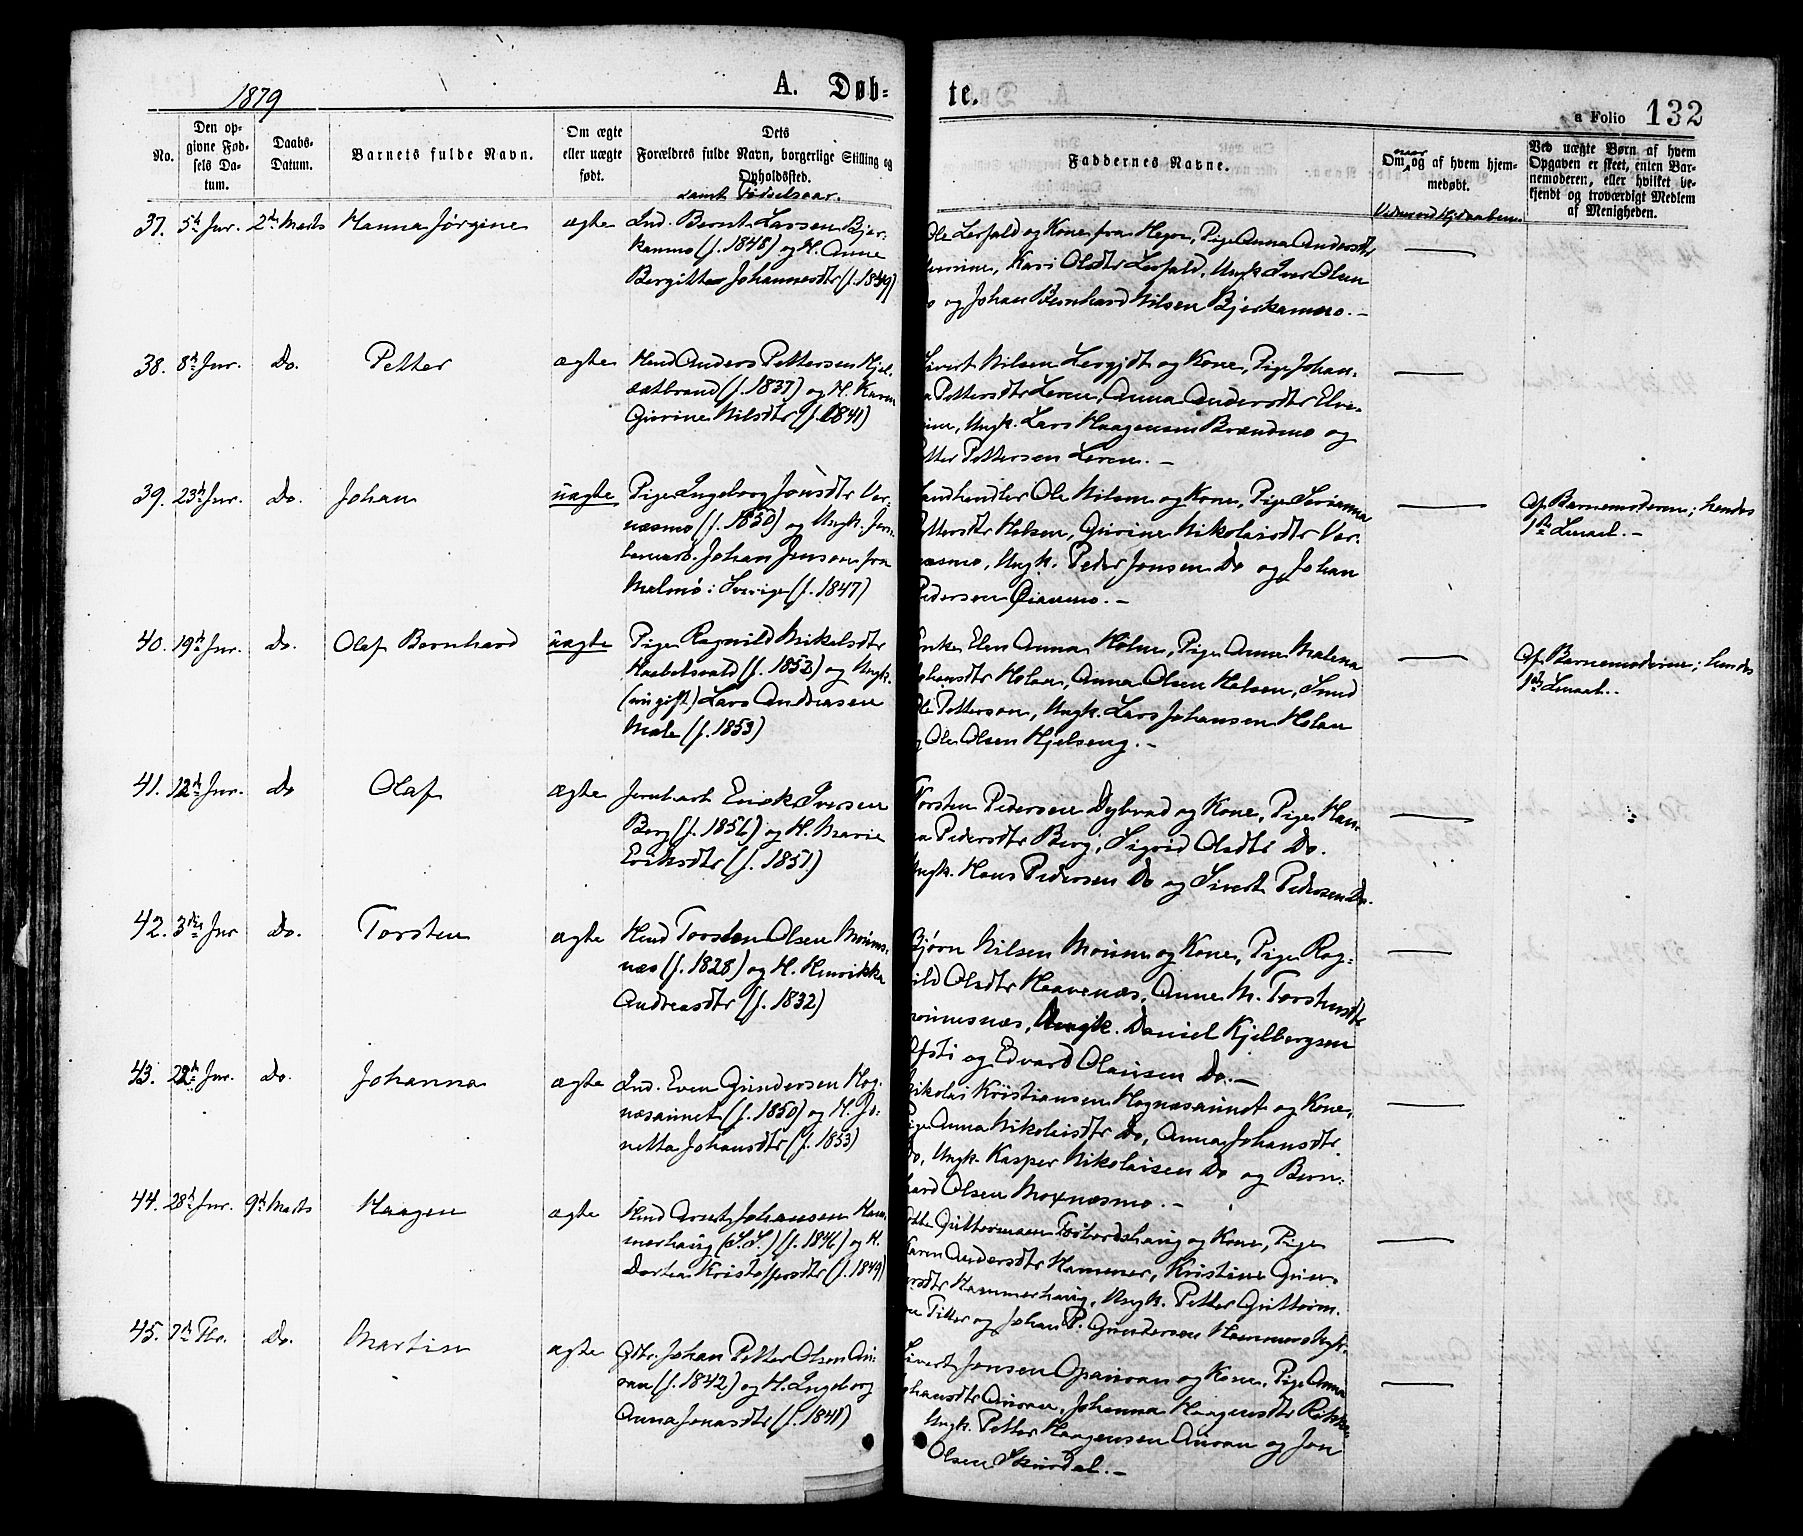 1879
A. Døb-
te.
a Folio 132
No.
Den op-
givne Fød-
sels Da-
tum.
Daabs-
Datum.
Barnets fulde Navn.
Om ægte
eller uægte
født.
Dets
Forældres fulde Navn, borgerlige Stilling og
Opholdssted.
samt Fødselsaar.
Faddernes Navne.
Om naar og af hvem hjem-
medøbt.
Ved uægte Børn af hvem
Opgaven er skeet, enten Bar-
nemoderen, eller hvilket be-
kjendt og troværdigt Medlem
af Menigheden.
37. 5te Jnr. 2den Marts Hanna Jørgine ægte Ind. Bernt Larsen Bjer-
kanmo (f. 1848) og H. Anne
Bergitte Johannesdtr (f. 1849)
Ole Lerfald og Kone fra Hegre, Pige Anna Andersdtr
Kari Olsdtr Lerfald, Ungk. Iver Olsen
og Johan Bernhard Nilsen Bjerkanmo. —
38. 8de Jnr. Do. Petter ægte Hmd Anders Pettersen Hjel-
(f. 1837) og H. Karen
Gurine Nilsdtr (f. 1841)
Sivert Nilsen og Kone, Pige Johan-
Pettersdtr Leren, Anna Andersdtr Elve-
Ungk. Lars Haagensen Brændmo og
Petter Pettersen Leren. —
39. 23de Jnr. Do. Johan uægte Pige Ingeborg Jonsdtr Ver-
næsmo (f. 1850) og Ungk. Jern-
banearb. Johan Jonson fra
Malmø i Sverige (f. 1847)
Landhandler Ole Nilsen og Kone, Pige
Pettersdtr Halsen, Gurine Nikolaisdtr Ver-
næsmo, Ungk. Peder Jonsen Do og Johan
Pedersen —
Af Barnemoderen; hendes
1ste Leiermaal. —
40. 19de Jnr. Do. Olaf Bernhard uægte Pige Ragnild Mikelsdtr
(f. 1852) og Ungk.
(nu gift) Lars Andreasen
Male (f. 1853)
Enke Elen Anna Holm, Pige Anne Malena
Johansdtr Holan, Anna Olsen Halsen, Smed
Ole Pettersen, Ungk. Lars Johansen Holan
og Ole Olsen Hjelseng. —
Af Barnemoderen; hendes
41. 12te Jnr. Do Olaf ægte Jernbarb Erik Iversen
Berg (f. 1856) og H. Marie
Eriksdtr (f. 1851)
Torsten Pedersen Dybvad og Kone, Pige Han-
na Pedersdtr Berg, Sigrid Olsdtr Do.
Ungk. Hans Pedersen Do og Sivert Pedersen Do.
42. 3die Jnr Do. Torsten ægte Hmd Torsten Olsen
næs (f. 1828) og H. Henrikka
Andreasdtr (f. 1832)
Bjørn Nilsen og Kone, Pige Rag-
nild Olsdtr Haavenæs, Anne M. Torstensdtr
Ungk. Daniel Kjelbergsen
og Edvard Olausen Do. —
43. 22de Jnr. Do. Johanna ægte Ind. Even Gundersen Hog-
næsaunet (f. 1850) og H. Jo-
netta Johansdtr (f. 1853)
Nikolai Kristiansen Hognæsaunet og Kone,
Pige Anna Nikolaisdtr Do, Anna Johansdtr
Do, Ungk. Kasper Nikolaisen Do og Bern-
hard Olsen Moxnæsmo. —
44. 28de Jnr. 9de Marts Haagen ægte Hmd Arnt Johansen Ham-
merhaug (S.S.) (f. 1846) og H.
Dortea Kristoffersdtr (f. 1849)
Guttormsen og Kone, Pige
Karen Andersdtr Hammer, Kristine Gun-
dersdtr Hammerhaug, Ungk. Petter Guttorm-
og Johan P. Gundersen
45. 7de Fbr. Do. Martin ægte Gbr. Johan Petter Olsen Au-
ran (f. 1842) og H. Ingeborg
Anna Jonasdtr (f. 1841)
Sivert Jonsen og Kone, Pige Anna
Johansdtr Auran, Johanna Haagensdtr
Ungk. Petter Haagensen Auran og Jon
Olsen Skurdal. —